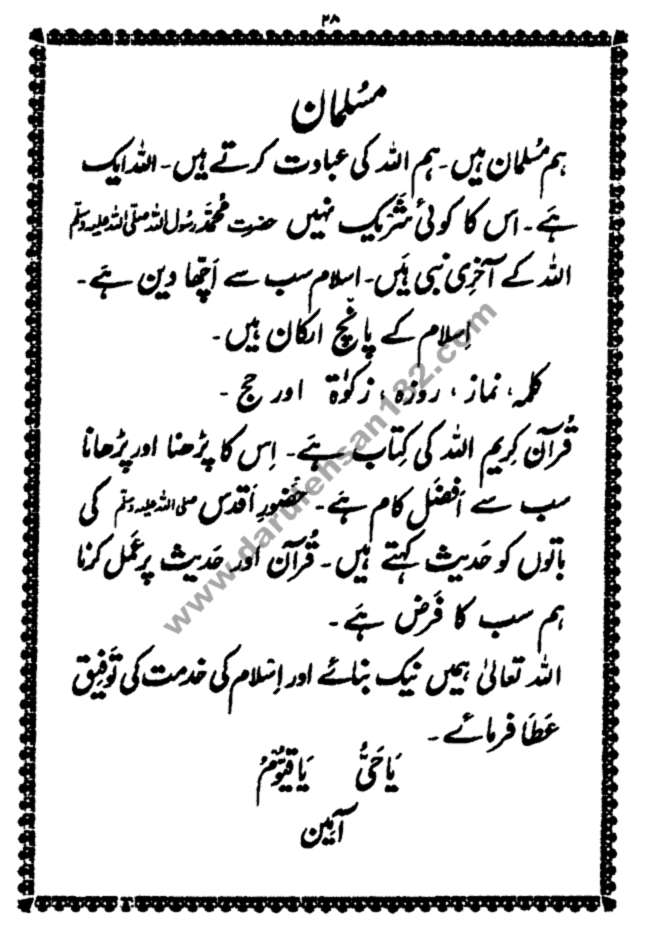 ۲۸
مسُلمان
ہم مسُلمان ہیں۔ ہم اللہ کی عبادت کرتے ہیں۔ اللہ ایک
ہے۔ اس کا کوئی شَرِیک نہیں حضرت محُمَّد رسُول اللہ صلّی اللہ علیہ وسلّم
اللہ کے آخِری نبی ہَیں۔ اسلام سب سے اَچّھا دین ہَے۔
اِسلام کے پانچ ارکان ہیں۔
کلمہ، نماز ، روزہ ، زکوٰۃ اور حج ۔
قُرآن کرِیم اللہ کی کِتاب ہَے۔ اِس کا پڑھنا اور پڑھانا
سب سے اَفضَل کام ہَے۔ حضُورِ اَقدس صلی اللہ علیہ وسلّم کی
باتوں کو حَدیث کہتے ہیں۔ قُرآن اور حَدیث پر عَمَل کرنا
ہم سب کا فَرض ہَے۔
اللہ تعالیٰ ہمیں نیک بنائے اور اِسلام کی خدمت کی توَفِیق
عَطا فرمائے۔
یَا حَیُّ یَا قَیُّوْمُ
آمین
www.darulehsan182.com